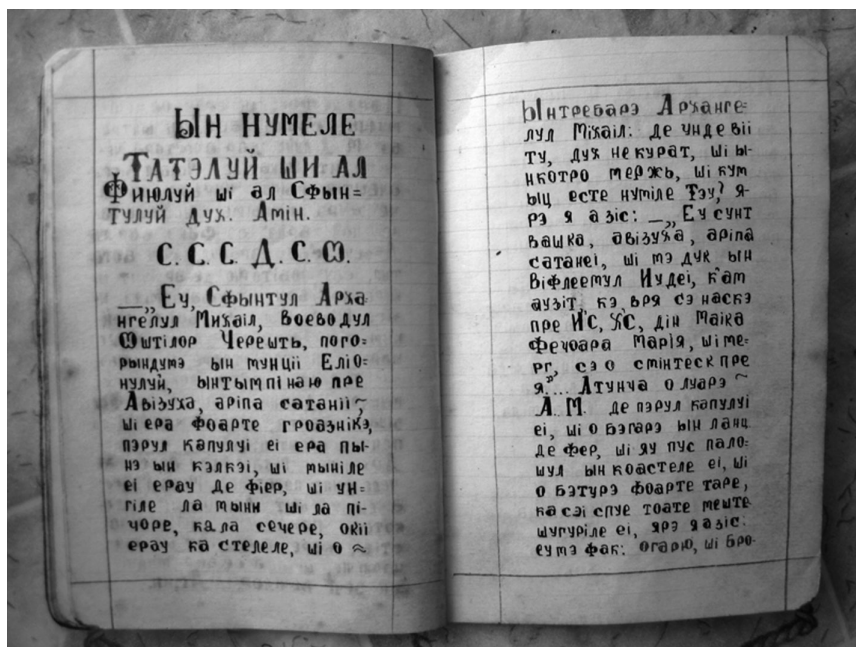 Ын нумеле
Татэлуй ши ал
Фиюлуй ші ал Сфын=
тулуй дух. Амін.
С. С. С. Д. С. Ѡ.
—„Еу, Сфынтул Арха-
нгелул Михаіл, Воеводул
Ѡштілор Черешть, пого=
рындумэ ын мунціі Еліо=
нулуй, ынтымпінаю пре
Авізуха, аріпа сатаніі, ~
ші ера фоарте гроазнікэ,
пэрул капулуі еі ера пы-
нэ ын кэлкэі, ші мыніле
еі ерау де фіер, ші ун=
гіле ла мыни ші ла пі-
чоре, ка ла сечере, окіі
ерау ка стелеле, ші о ≈
Ынтребарэ Арханге=
лул Міхаіл: де унде віі
ту, дух некурат, ші ы-
нкотро мержь, ші кум
ыц есте нуміле Тэу? я-
рэ я а зіс: —„Еу сунт
Вашка, авізуха, аріпа
сатанеі, ші мэ дук ын
Віфлеемул Иудеі, к'ам
аузіт кэ вря сэ наскэ
пре И'С, ХС, дін Маіка
Фечоара Марія, ші ме=
рг, сэ о смінтеск пре
я“... Атунча о луарэ ~
А. М. де пэрул капулуі
еі, ші о бэгарэ ын ланц
де фер, ші яу пус пало=
шул ын коастеле еі, ші
о бэтурэ фоарте таре,
ка сэі спуе тоате меште
шугуріле еі, ярэ я а зіс:
еу мэ фак: огарю, ші бро-